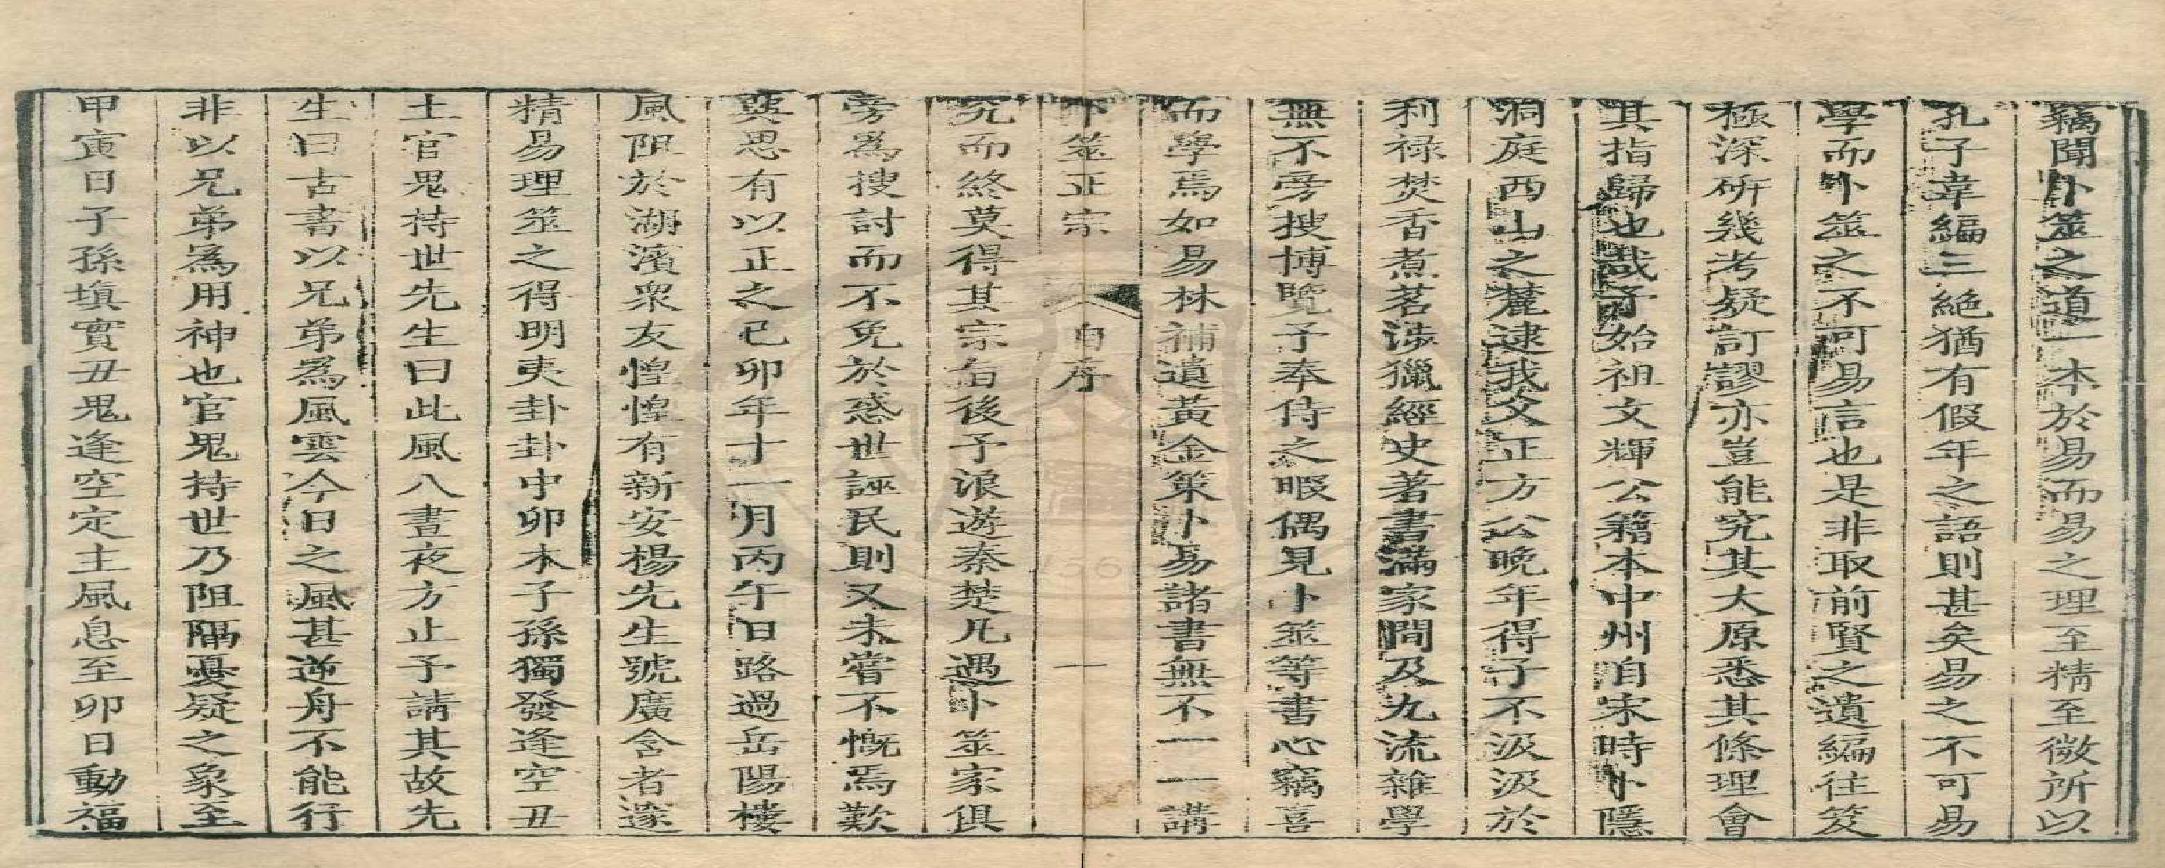 竊聞卜筮之道一本於易而易之理至精至微所以
孔子韋編三絕猶有假年之語則甚矣易之不可易
學而卜筮之不可易言也是非取前賢之遺編往笈
極深硏幾考疑訂謬亦豈能究其大原悉其條理會
其指歸也哉予始祖文輝公籍本中州自宋時卜隱
洞庭西山之麓逮我父正方公晚年得子不汲汲於
利祿焚香煮茗涉獵經史著書滿家間及九流雜學
無不旁搜博覽予奉侍之暇偶見卜筮等書心竊喜
而學焉如易林補遺黃金策卜易諸書無不一一講
卜筮正宗 自序 一
究而終莫得其宗旨後予浪遊秦楚凡遇卜筮家俱
旁爲搜討而不免於惑世誣民則又未嘗不慨焉歎
與思有以正之已卯年十一月丙午日路過岳陽樓
風阻於湖濱衆友惶惶有新安楊先生號廣含者邃
精易理筮之得明夷卦卦中卯木子孫獨發逢空丑
土官鬼持世先生曰此風八晝夜方止予請其故先
生曰古書以兄弟爲風雲今日之風甚逆舟不能行
非以兄弟爲用神也官鬼持世乃阻隔憂疑之象至
甲寅日子孫塡實丑鬼逢空定主風息至卯日動福